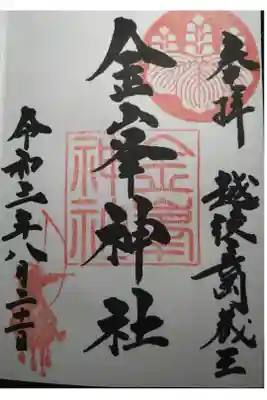 奉拝
越後長岡蔵王
金峯神社
令和二年八月二十二日
金峯神社